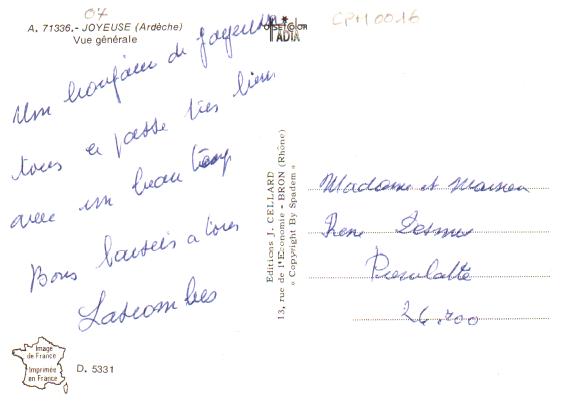 07
CPM 0016
A. 71336.- JOYEUSE (Ardèche)
Vue générale
ISETCOLOR
IADIA
Un bonjour de Joyeuse
tous a passe tres bien
avec un beau temp
Bons baisers a tous
Lascombes
Editions J. CELLARD
13, rue de l'Economie - BRON (Rhône)
« Copyright By Spadem »
Madame et Monsieur
Rene
Pierrelatte
26.700
Image
de France
Imprimée
en France
D. 5331